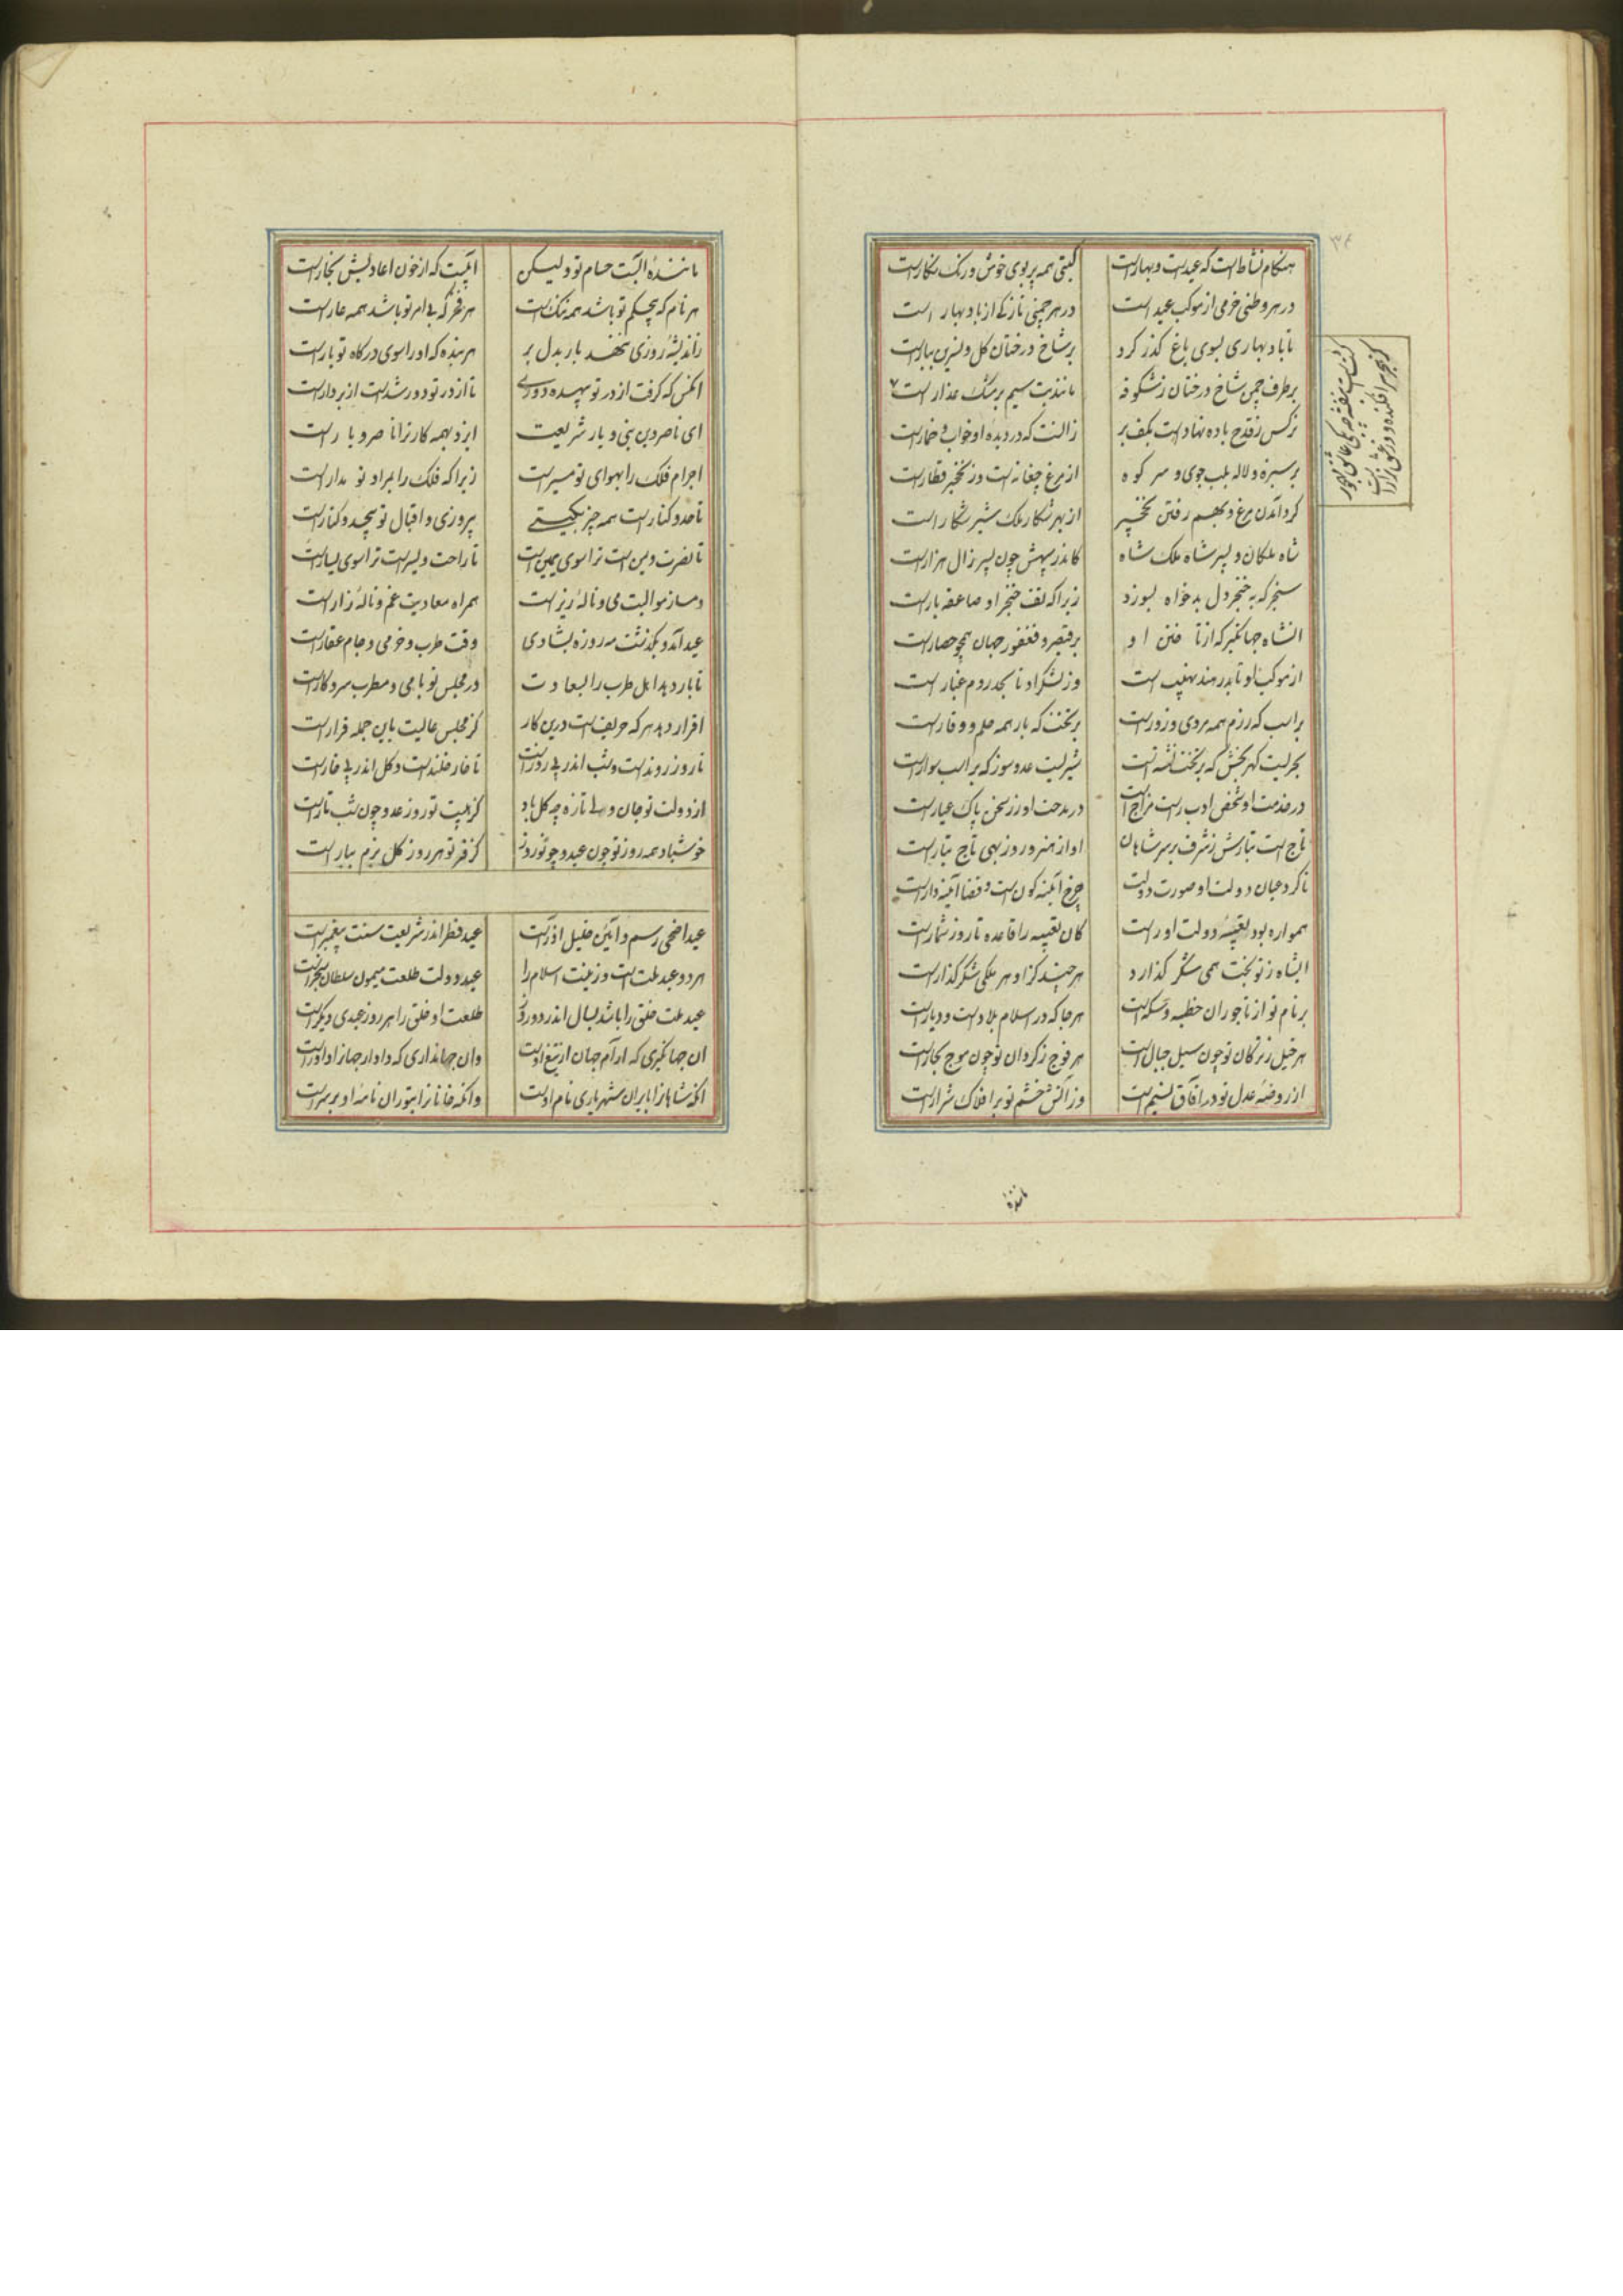 ۳۴
هنکام نشاط است که عیدست و بهارست کیتی همه پر بوی خوش و رنک نکارست
در هر وطنی خرمی از موکب عید است در هر چمنی تازکی از باد بهار است
تا باد بهاری بسوی باغ کذر کرد بر شاخ درختان کل و نسرین ببارست
بر طرف چمن شاخ درختان ز شکوفه مانند بت سیم بر مشک عذار است ۷
نرکس ز قدح باده نهادست بکف بر زانست که در دیده او خواب و خمارست
بر سبزه و لاله بلب جوی و سر کوه از مرغ چغانه است وز نخجیر قطارست
کرد آمدن مرغ و بهم رفتن نخجیر از بهر شکار ملک شیر شکار است
شاه ملکان و پسر شاه ملک شاه کاندر سپهش چون پسر زال هزارست
سنجر که به خنجر دل بدخواه بسوزد زیرا که تف خنجر او صاعقه بارست
انشاه جهانکیر که از تافتن او بر قیصر و فغفور جهان همچو حصارست
از موکب او تا بدر هند نهیب است وز لشکر او تا بحد روم غبار است
بر اسب که رزم همه مردی و زورست بر تخت که بار همه حلم و وقارست
بحریست کهر بخش که بر تخت نشستست شیریست عدو سوز که بر اسب سوارست
در خدمت او شخص ادب راست مزاج است در مدحت او زر سخن پاک عیارست
تاج است تبارش ز شرف بر سر شاهان او از هنر و روزبهی تاج تبارست
ناکرد عیان دولت او صورت دولت چرخ آینه کون است و قضا آینه دارست
همواره بود تعبیه دولت او راست کان تعبیه را قاعده تا روز شمارست
ایشاه ز تو بخت همی شکر کذارد هر چند کز او هر ملکی شکر کذارست
بر نام تو از تاجوران خطبه و سکه است هر جا که در اسلام بلادست و دیارست
هر خیل ز ترکان تو چون سیل جبال است هر فوج ز کردان تو چون موج بحارست
از روضه عدل تو در افاق نسیم است وز اتش خشم تو بر افلاک شرارست
مانندهٔ
مانندهٔ ابست حسام تو ولیکن ابیست که از خون اعادیش بخارست
هر نام که بیحکم تو باشد همه ننک است هر فخر که بی امر تو باشد همه عارست
زاندیشه روزی ننهد بار بدل بر هر بنده که او را سوی درکاه تو بارست
انکس که کرفت از در تو بیهده دوری تا از در تو دور شدست از در دارست
ای ناصر دین نبی و یار شریعت ایزد بهمه کار ترا ناصر و یارست
اجرام فلک را بهوای تو مسیرست زیرا که فلک را بمراد تو مدارست
تا حد و کنارست همه چیز بکیتی پیروزی و اقبال تو بیحد و کنارست
تا نصرت و یمن است ترا سوی یمین است تا راحت و یسرست ترا سوی یسارست
دمساز موالیت می و ناله زیرست همراه معادیت غم و ناله زارست
عید آمد و بکذشت مه روزه بشادی وقت طرب و خرمی و جام عقارست
تا بار دهد اهل طرب را بسعادت در مجلس تو با می و مطرب سر و کارست
اقرار دهد هر که حریف است درین کار کز مجلس عالیت باین جمله قرارست
تا روز رونده است و شب اندر پی روزست تا خار خلنده است و کل اندر پی خارست
از دولت تو جان ولی تازه چو کل باد کز هیبت تو روز عدو چون شب تارست
خوشباد همه روز تو چون عید و چو نوروز کز فر تو هر روز کل بزم ببارست
عید اضحی رسم و آیین خلیل آزرست عید فطر اندر شریعت سنت پیغمبرست
هر دو عید ملت است و زینت اسلام را عید دولت طلعت میمون سلطان سنجرست
عید ملت خلق را باشد بسال اندر دو روز طلعت او خلق را هر روز عیدی دیکرست
ان جهانکیری که ارام جهان از تیغ اوست وان جهانداری که دادار جهانرا داورست
انکه شاهانرا بایران شهریاری نام اوست وانکه خانانرا بتوران نامه او بر سرست